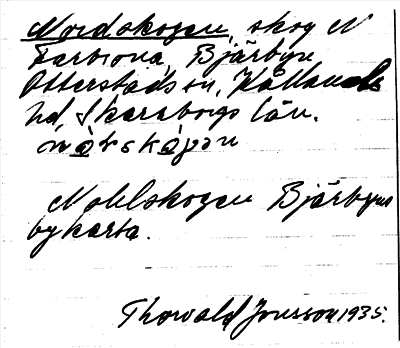 Nordskogen, skog N
Farbrona, Bjärbyn
Otterstads sn, Kållands
hd, Skaraborgs län.
nòrskògan
Nohlskogen Bjärbyns
bykarta.
Thorvald Jonsson 1935.